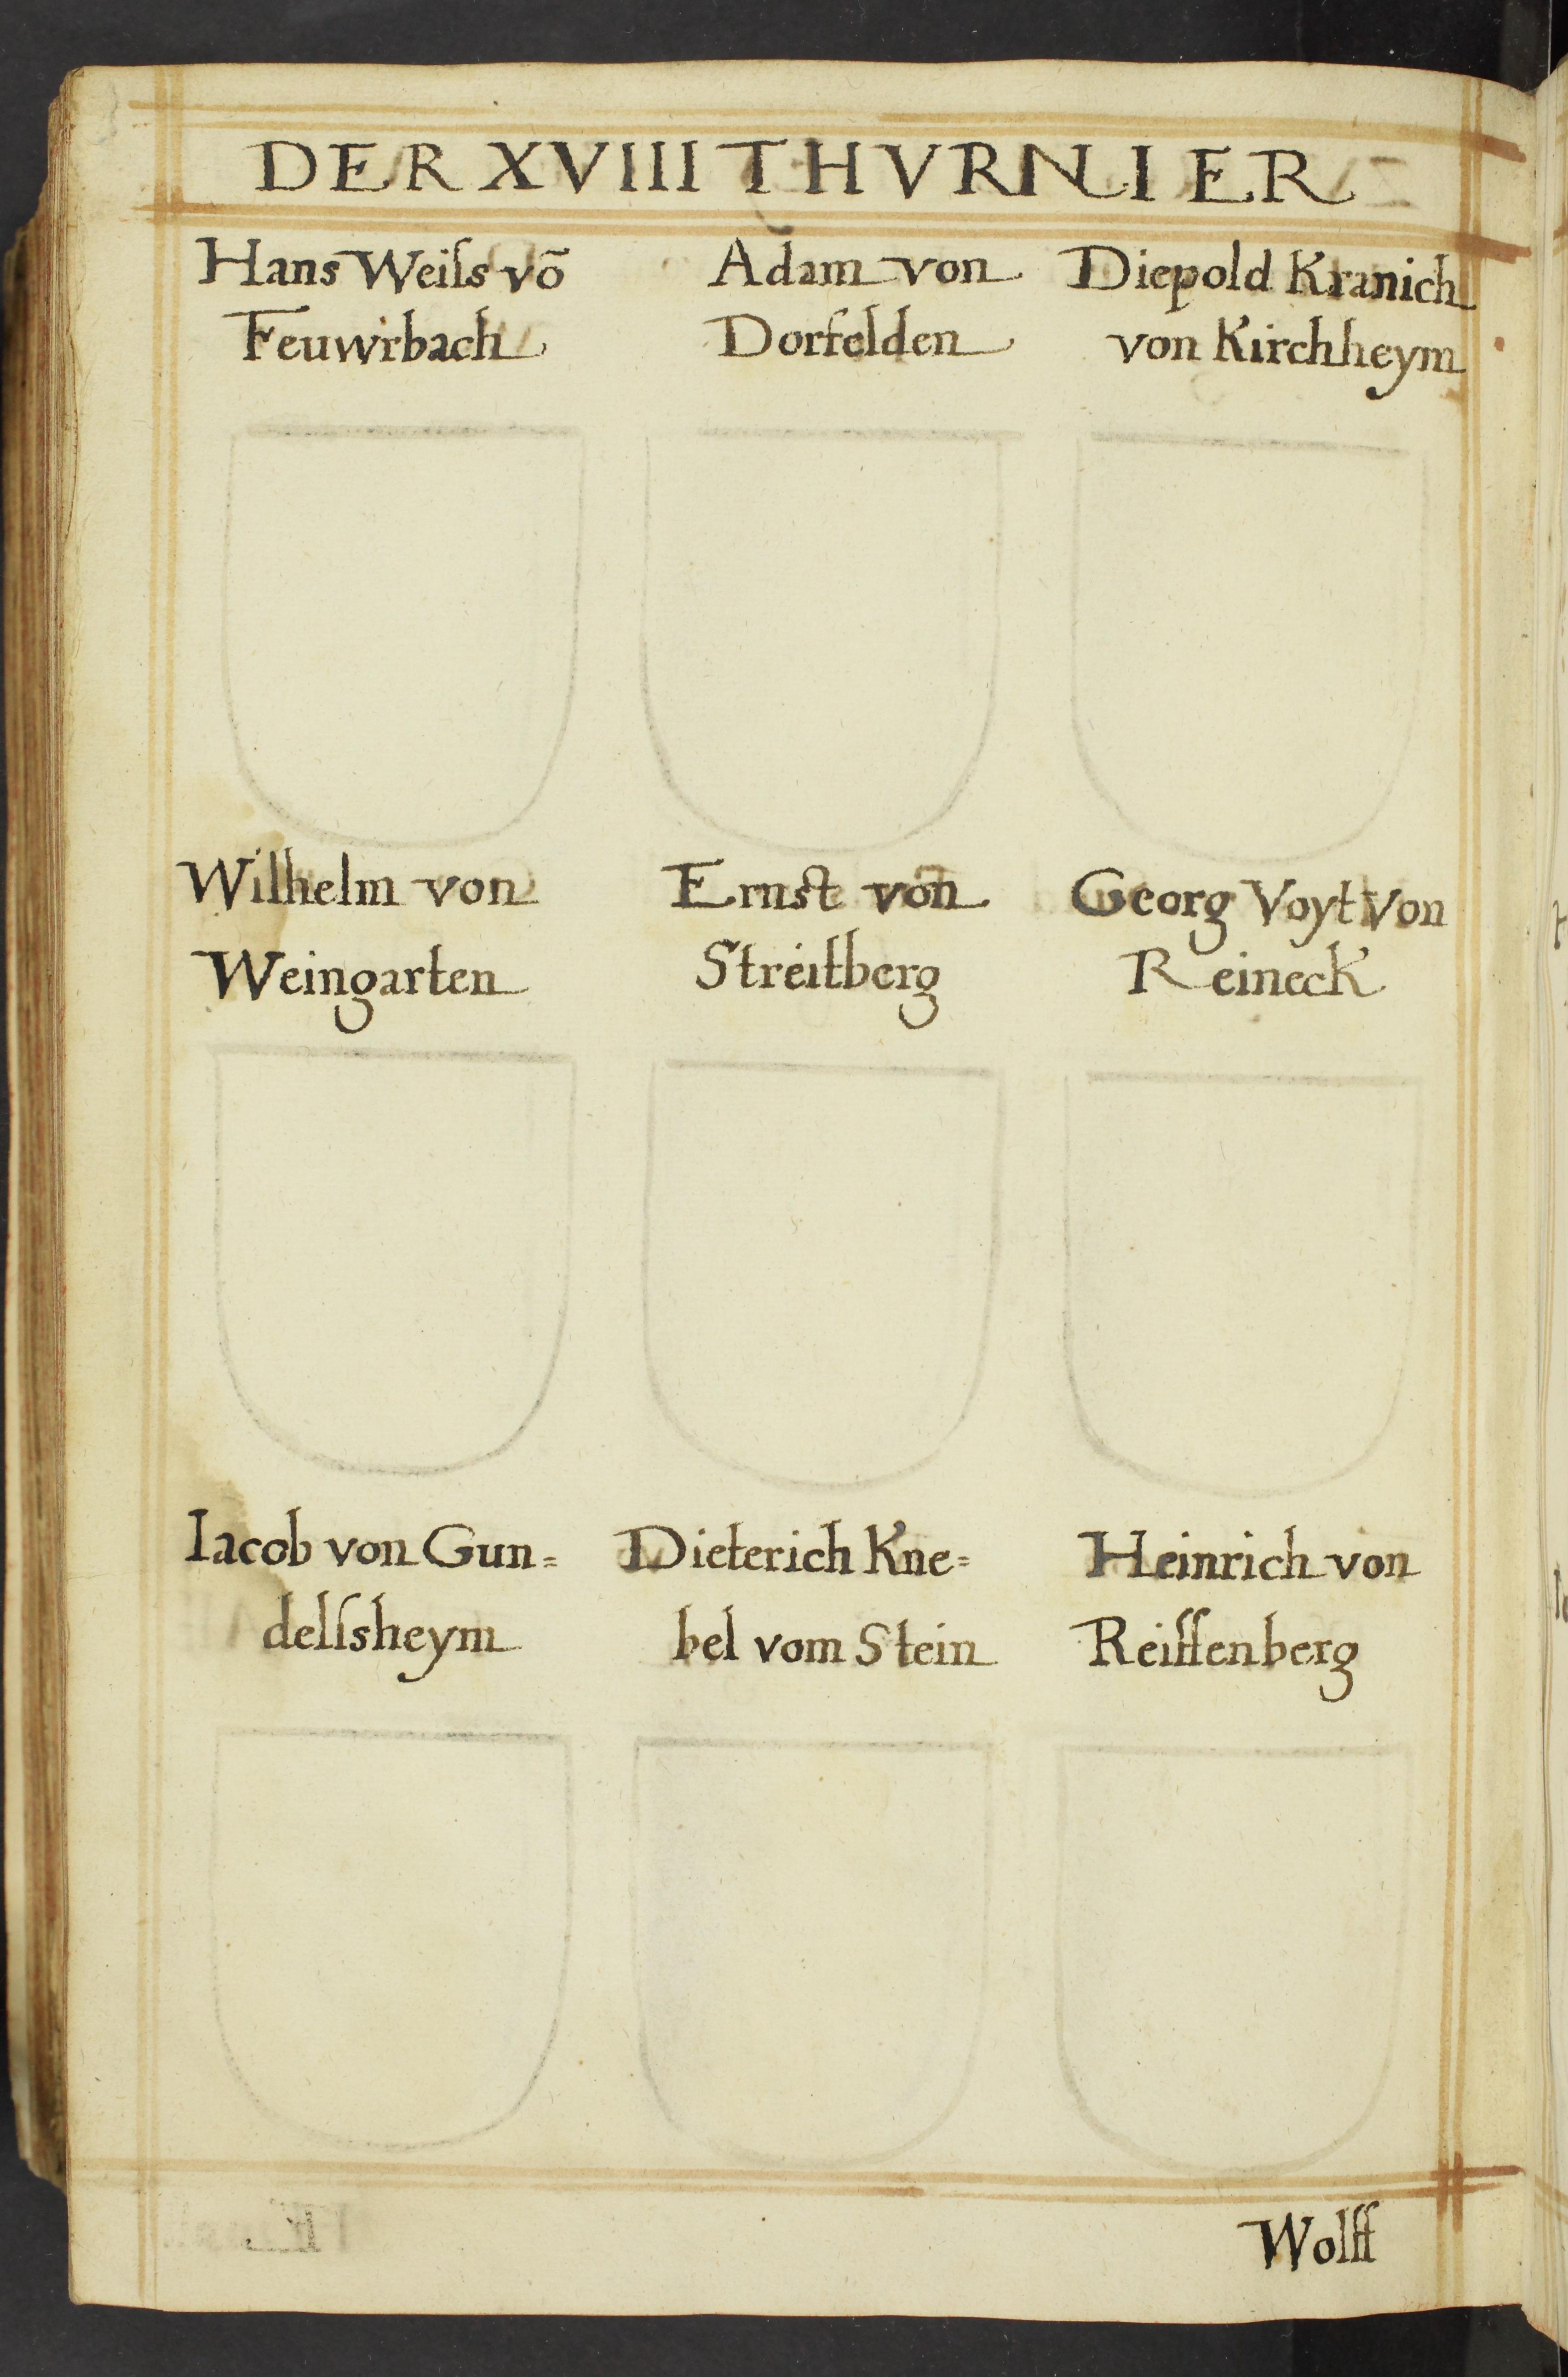 DER XVIII THVRNIER
Hans Weiſs võ
Feuwrbach
Adam von
Dorfelden
Diepold Kranich
von Kirchheym
Wilhelm von
Weingarten
Ernst von
Streitberg
Georg Voyt von
Reineck
Iacob von Gun=
delſsheym
Dieterich Kne=
bel vom Stein
Heinrich von
Reiffenberg
Wolff